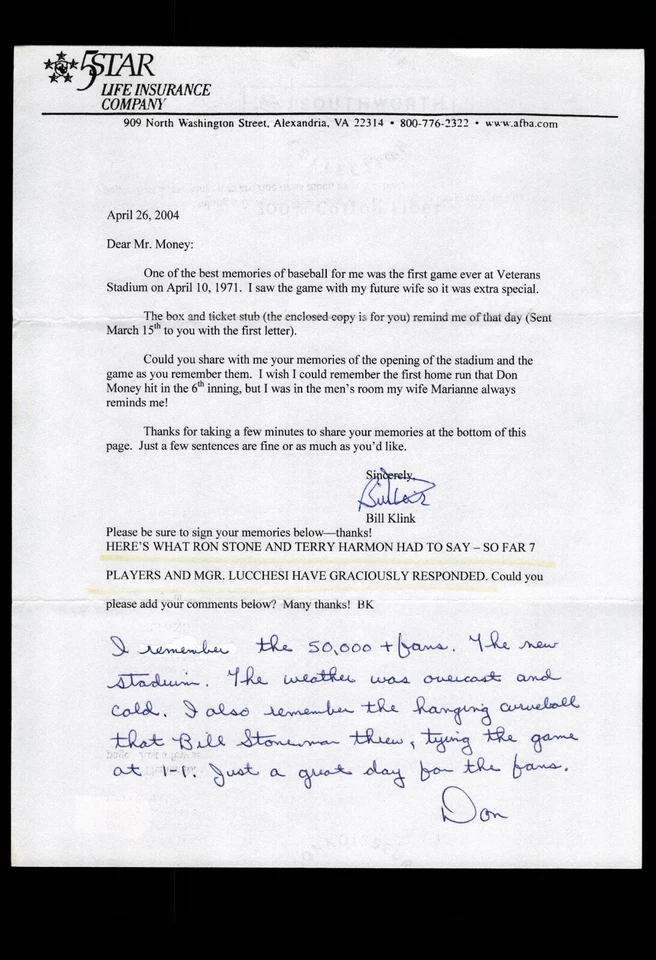 5STAR
LIFE INSURANCE
COMPANY
909 North Washington Street, Alexandria, VA 22314 • 800-776-2322 • www.afba.com
April 26, 2004
Dear Mr. Money:
One of the best memories of baseball for me was the first game ever at Veterans
Stadium on April 10, 1971. I saw the game with my future wife so it was extra special.
The box and ticket stub (the enclosed copy is for you) remind me of that day (Sent
March 15th to you with the first letter).
Could you share with me your memories of the opening of the stadium and the
game as you remember them. I wish I could remember the first home run that Don
Money hit in the 6th inning, but I was in the men's room my wife Marianne always
reminds me!
Thanks for taking a few minutes to share your memories at the bottom of this
page. Just a few sentences are fine or as much as you'd like.
Sincerely,
Bill Klink
Please be sure to sign your memories below—thanks!
HERE'S WHAT RON STONE AND TERRY HARMON HAD TO SAY – SO FAR 7
PLAYERS AND MGR. LUCCHESI HAVE GRACIOUSLY RESPONDED. Could you
please add your comments below? Many thanks! BK
I remember the 50,000 + fans. The new
stadium. The weather was overcast and
cold. I also remember the hanging curveball
that Bill Stoneman threw, tying the game
at 1-1. Just a great day for the fans.
Don